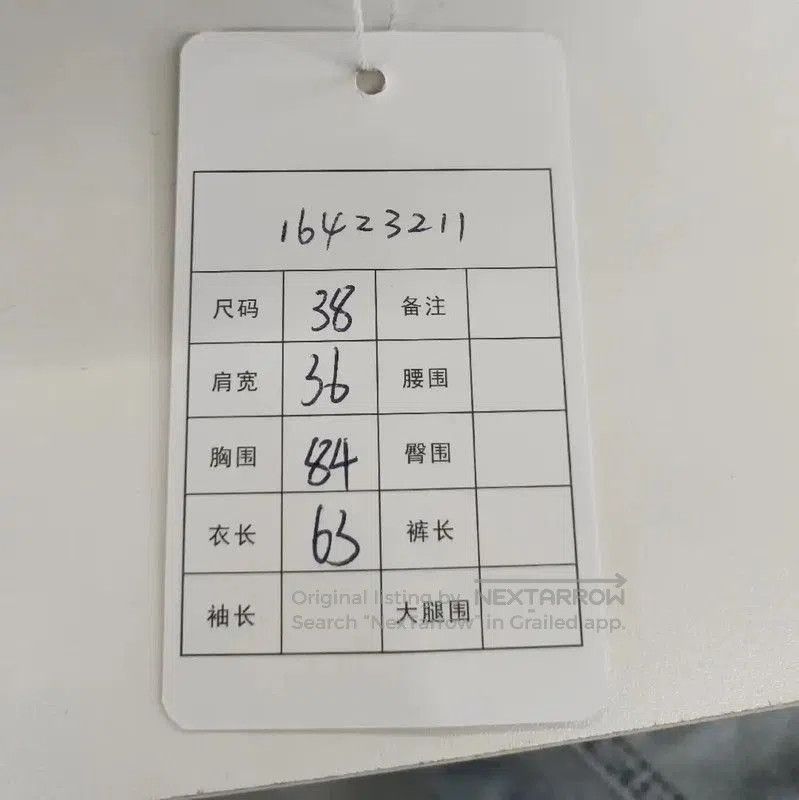 16423211
尺码 38 备注
肩宽 36 腰围
胸围 84 臀围
衣长 63 裤长
袖长 大腿围
Original listing by NEXTARROW
Search "NexTarrow" in Grailed app.